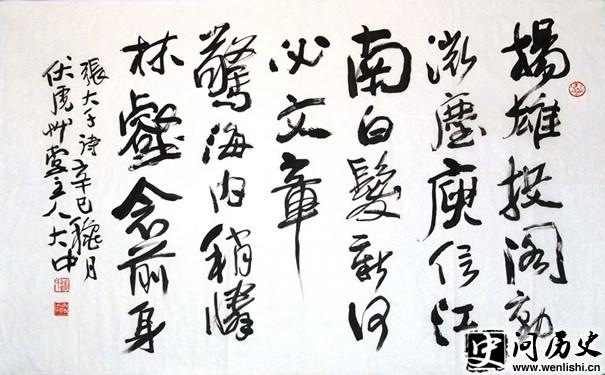 揚雄投阁動
微塵庾信江
南白髮新何
必文章
驚海内稍憐
林壑念前身
張大千诗辛巳穐月
伏虎艸堂主人大中
问历史
www.wenlishi.cn